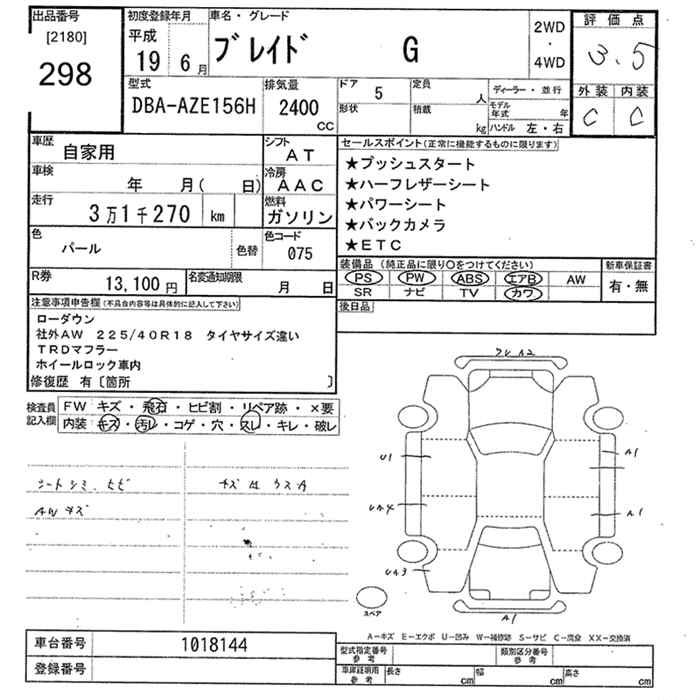 出品番号
[2180]
298
初度登録年月
平成
19 6月
車名・グレード
ブレイド G
2WD
・
4WD
評価点
3.5
外装 内装
C C
型式
DBA-AZE156H
排気量
2400
cc
ドア 5
形状
定員 人
積載 kg
ディーラー・並行
モデル年式 年
ハンドル 左・右
車歴
自家用
シフト
AT
車検
年 月( 日)
冷房
AAC
走行
3万1千270 km
燃料
ガソリン
色
パール
色替
色コード
075
R券
13,100円
名変通知期限
月 日
セールスポイント(正常に機能するものに限ります)
★プッシュスタート
★ハーフレザーシート
★パワーシート
★バックカメラ
★ETC
装備品(純正品に限り○をつけてください)
PS PW ABS エアB AW
SR ナビ TV カワ
新車保証書
有・無
後日品
注意事項申告欄(不具合内容等は具体的に記入して下さい)
ローダウン
社外AW 225/40R18 タイヤサイズ違い
TRDマフラー
ホイールロック車内
修復歴 有〔箇所 〕
検査員記入欄
FW キズ・飛石・ヒビ割・リペア跡・×要
内装 キズ・汚レ・コゲ・穴・スレ・キレ・破レ
シートシミ、ヒビ
AWキズ
A2
U1
A1
UA4
A1
UA3
A1
スペア
A-キズ E-エクボ U-凹み W-補修跡 S-サビ C-腐食 XX-交換済
車台番号 1018144
登録番号
型式指定番号
参考
類別区分番号
参考
車庫証明用
参考
長さ cm
幅 cm
高さ cm